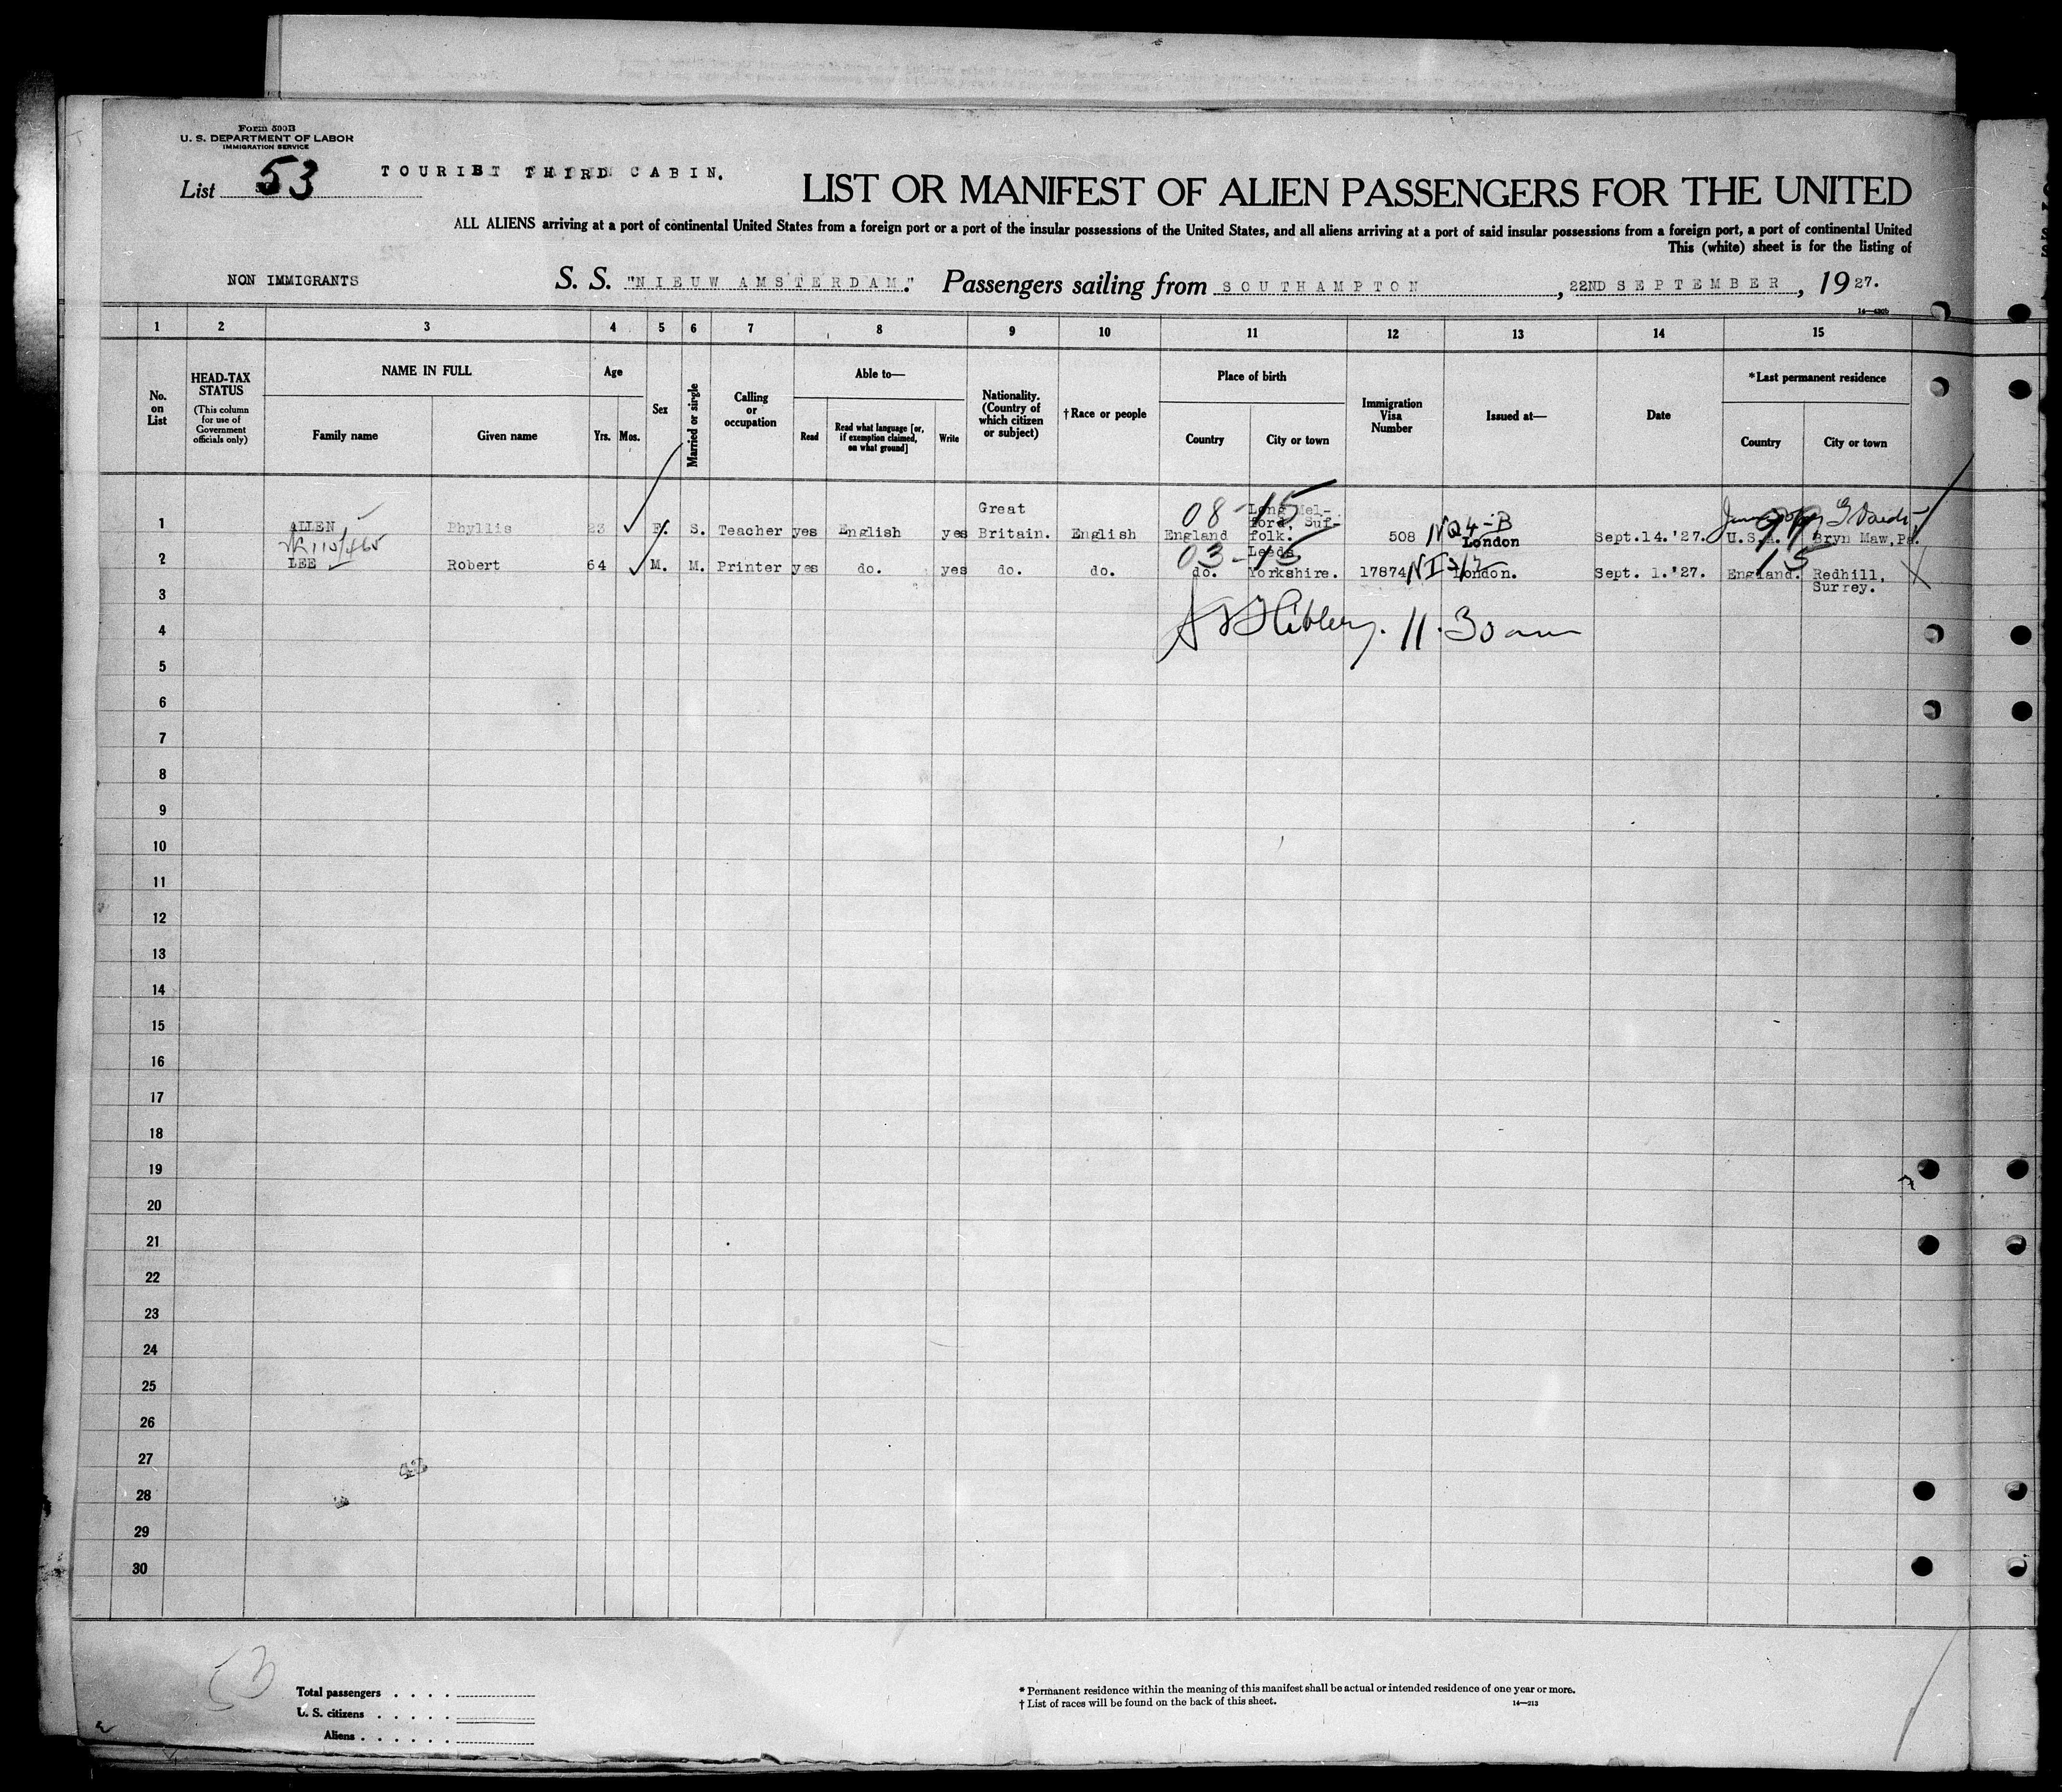 Form 500B
U. S. DEPARTMENT OF LABOR
IMMIGRATION SERVICE
List 53
TOURIST THIRD CABIN.
LIST OR MANIFEST OF ALIEN PASSENGERS FOR THE UNITED
ALL ALIENS arriving at a port of continental United States from a foreign port or a port of the insular possessions of the United States, and all aliens arriving at a port of said insular possessions from a foreign port, a port of continental United
This (white) sheet is for the listing of
NON IMMIGRANTS
S. S. "NIEUW AMSTERDAM." Passengers sailing from SOUTHAMPTON, 22ND SEPTEMBER, 1927.
1 2 3 4 5 6 7 8 9 10 11 12 13 14 15
No. on List
HEAD-TAX STATUS
(This column for use of Government officials only)
NAME IN FULL
Family name Given name
Age
Yrs. Mos.
Sex
Married or single
Calling or occupation
Able to—
Read
Read what language [or, if exemption claimed, on what ground]
Write
Nationality. (Country of which citizen or subject)
†Race or people
Place of birth
Country City or town
Immigration Visa Number
Issued at—
Date
*Last permanent residence
Country City or town
1 ALLEN Phyllis 23 F. S. Teacher yes English yes Great Britain. English England Long Mel-ford, Suf-folk. 508 London Sept.14.'27. U.S.A. Bryn Maw, Pa.
08-15 NQ 4-B 99
2 LEE Robert 64 M. M. Printer yes do. yes do. do. do. Leeds Yorkshire. 17874 London. Sept. 1.'27. England. Redhill, Surrey.
03-15 15
3
11.30 am
4
5
6
7
8
9
10
11
12
13
14
15
16
17
18
19
20
21
22
23
24
25
26
27
28
29
30
53
Total passengers . . . .
U. S. citizens . . . . .
Aliens . . . . . .
* Permanent residence within the meaning of this manifest shall be actual or intended residence of one year or more.
† List of races will be found on the back of this sheet.
14—213